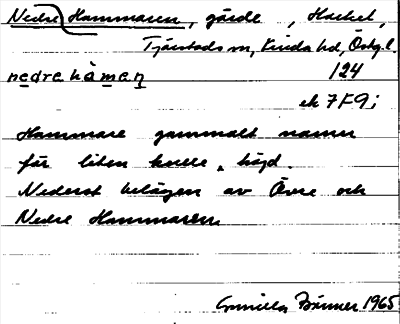 Nedre Hammaren, gärde, Hackel,
Tjärstads sn, Kinda hd, Östg.l.
nedre hàmeṇ 124
ek 7F9;
Hammare gammalt namn
för liten kulle, höjd.
Nederst belägen av Övre och
Nedre Hammaren
Gunilla 1965